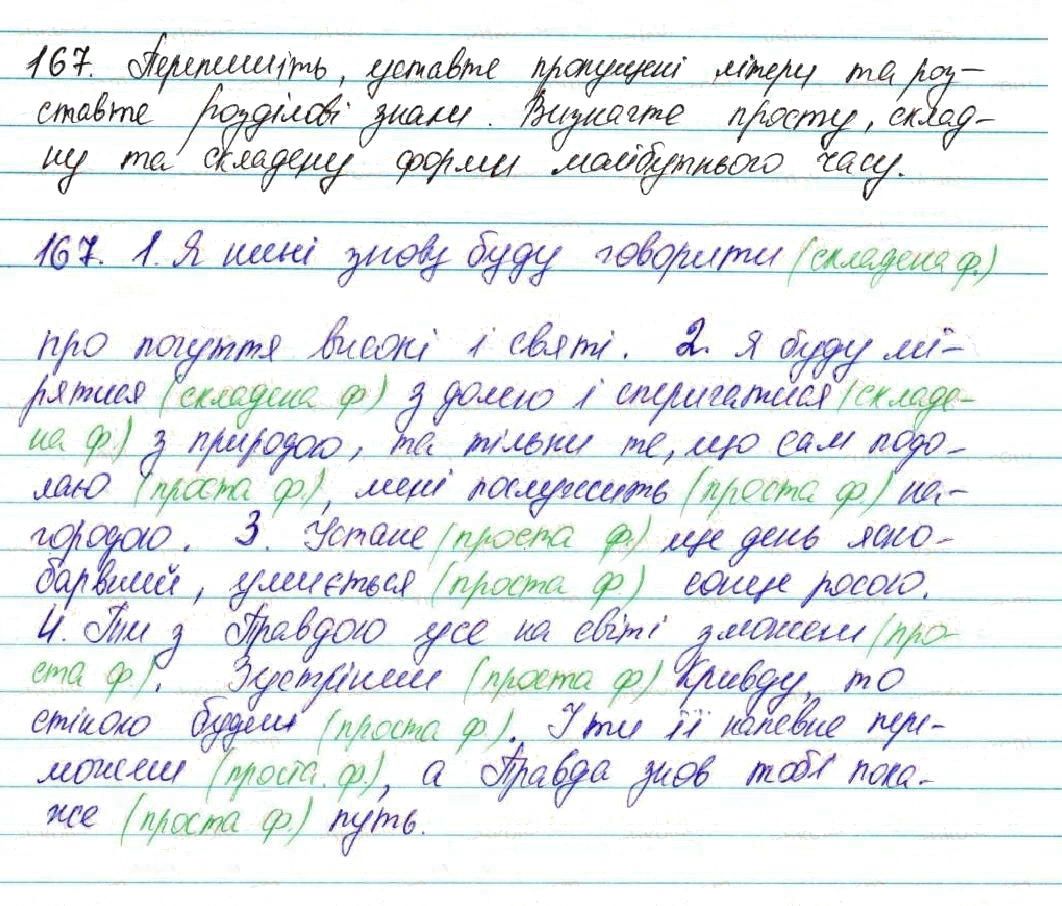 167. Перепишіть, уставте пропущені літери та роз-
ставте розділові знаки. Визначте просту, склад-
ну та складену форми майбутнього часу.
167. 1. Я нині знову буду говорити (складена ф.)
про почуття високі і святі. 2. Я буду мі-
рятися (складена ф.) з долею і сперичатися (складе-
на ф.) з природою, та тільки те, що сам подо-
лаю (проста ф.), мені послужить (проста ф.) на-
городою. 3. Устане (проста ф.) ще день ясно-
барвний, умиється (проста ф.) сонце росою.
4. Ти з Правдою усе на світі зможеш (про-
ста ф.). Зустрінеш (проста ф.) Кривду, то
стіною будеш (проста ф.). І ти її напевне пере-
можеш (проста ф.), а Правда знов тобі пока-
же (проста ф.) путь.